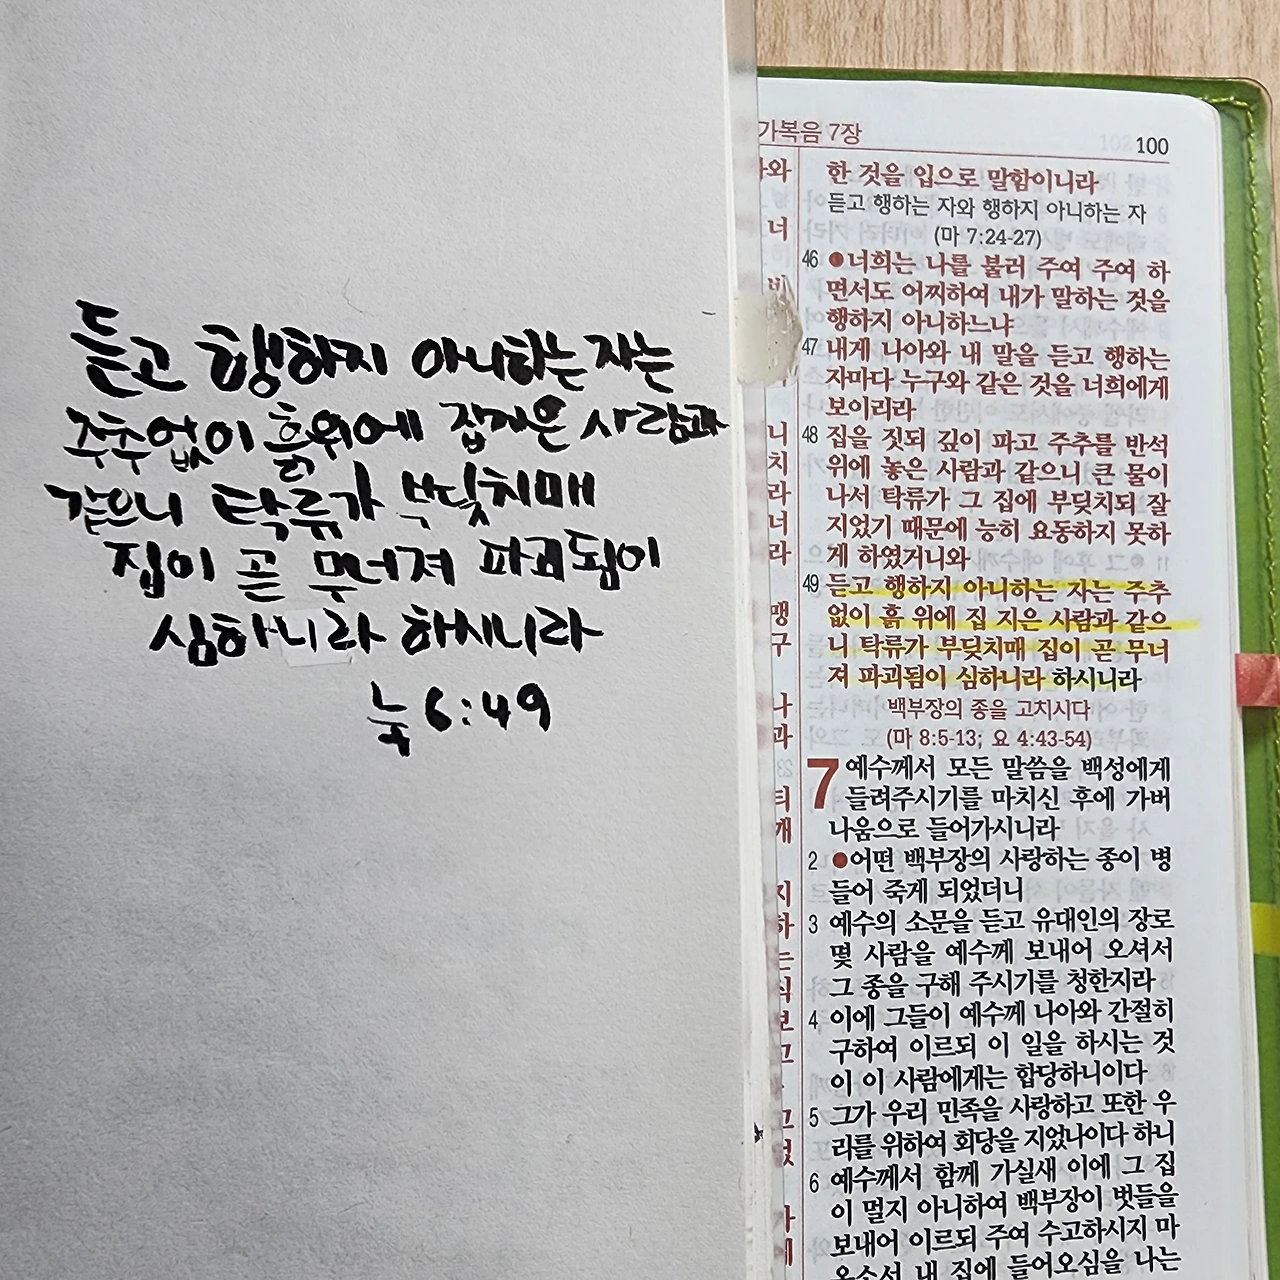 듣고 행하지 아니하는 자는
주추 없이 흙 위에 집 지은 사람과
같으니 탁류가 부딪치매
집이 곧 무너져 파괴됨이
심하니라 하시니라
눅 6:49
가복음 7장
100
한 것을 입으로 말함이니라
듣고 행하는 자와 행하지 아니하는 자
(마 7:24-27)
46 ●너희는 나를 불러 주여 주여 하
면서도 어찌하여 내가 말하는 것을
행하지 아니하느냐
47 내게 나아와 내 말을 듣고 행하는
자마다 누구와 같은 것을 너희에게
보이리라
48 집을 짓되 깊이 파고 주추를 반석
위에 놓은 사람과 같으니 큰 물이
나서 탁류가 그 집에 부딪치되 잘
지었기 때문에 능히 요동하지 못하
게 하였거니와
49 듣고 행하지 아니하는 자는 주추
없이 흙 위에 집 지은 사람과 같으
니 탁류가 부딪치매 집이 곧 무너
져 파괴됨이 심하니라 하시니라
백부장의 종을 고치시다
(마 8:5-13; 요 4:43-54)
7 예수께서 모든 말씀을 백성에게
들려주시기를 마치신 후에 가버
나움으로 들어가시니라
2 ●어떤 백부장의 사랑하는 종이 병
들어 죽게 되었더니
3 예수의 소문을 듣고 유대인의 장로
몇 사람을 예수께 보내어 오셔서
그 종을 구해 주시기를 청한지라
4 이에 그들이 예수께 나아와 간절히
구하여 이르되 이 일을 하시는 것
이 이 사람에게는 합당하니이다
5 그가 우리 민족을 사랑하고 또한 우
리를 위하여 회당을 지었나이다 하니
6 예수께서 함께 가실새 이에 그 집
이 멀지 아니하여 백부장이 벗들을
보내어 이르되 주여 수고하시지 마
옵소서 내 집에 들어오심을 나는